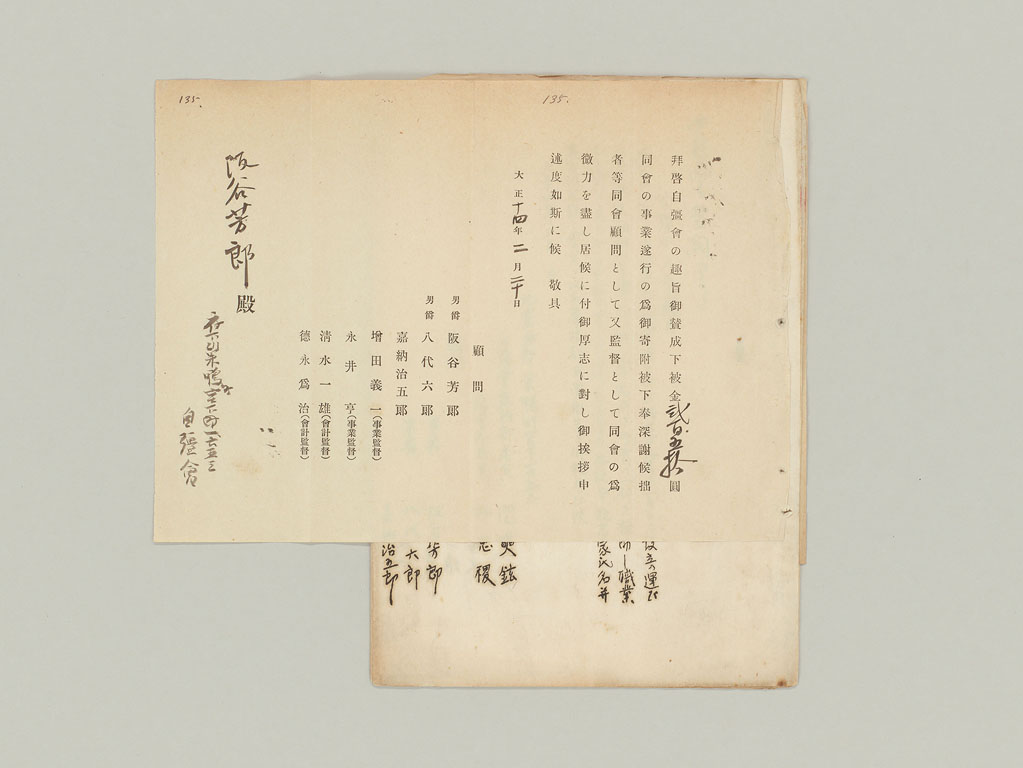 135.
135.
拜啓自彊會の趣旨御賛成下被金貳百五拾圓
同會の事業遂行の爲御寄附被下奉深謝候拙
者等同會顧問として又監督として同會の爲
微力を盡し居候に付御厚志に對し御挨拶申
述度如斯に候 敬具
大正十四年二月二十日
顧問
男爵 阪谷芳郎
男爵 八代六郎
嘉納治五郎
增田義一(事業監督)
永井亨(事業監督)
清水一雄(會計監督)
德永爲治(會計監督)
阪谷芳郎殿
自彊會
職業
家氏名并
芳郎
六郎
治五郎